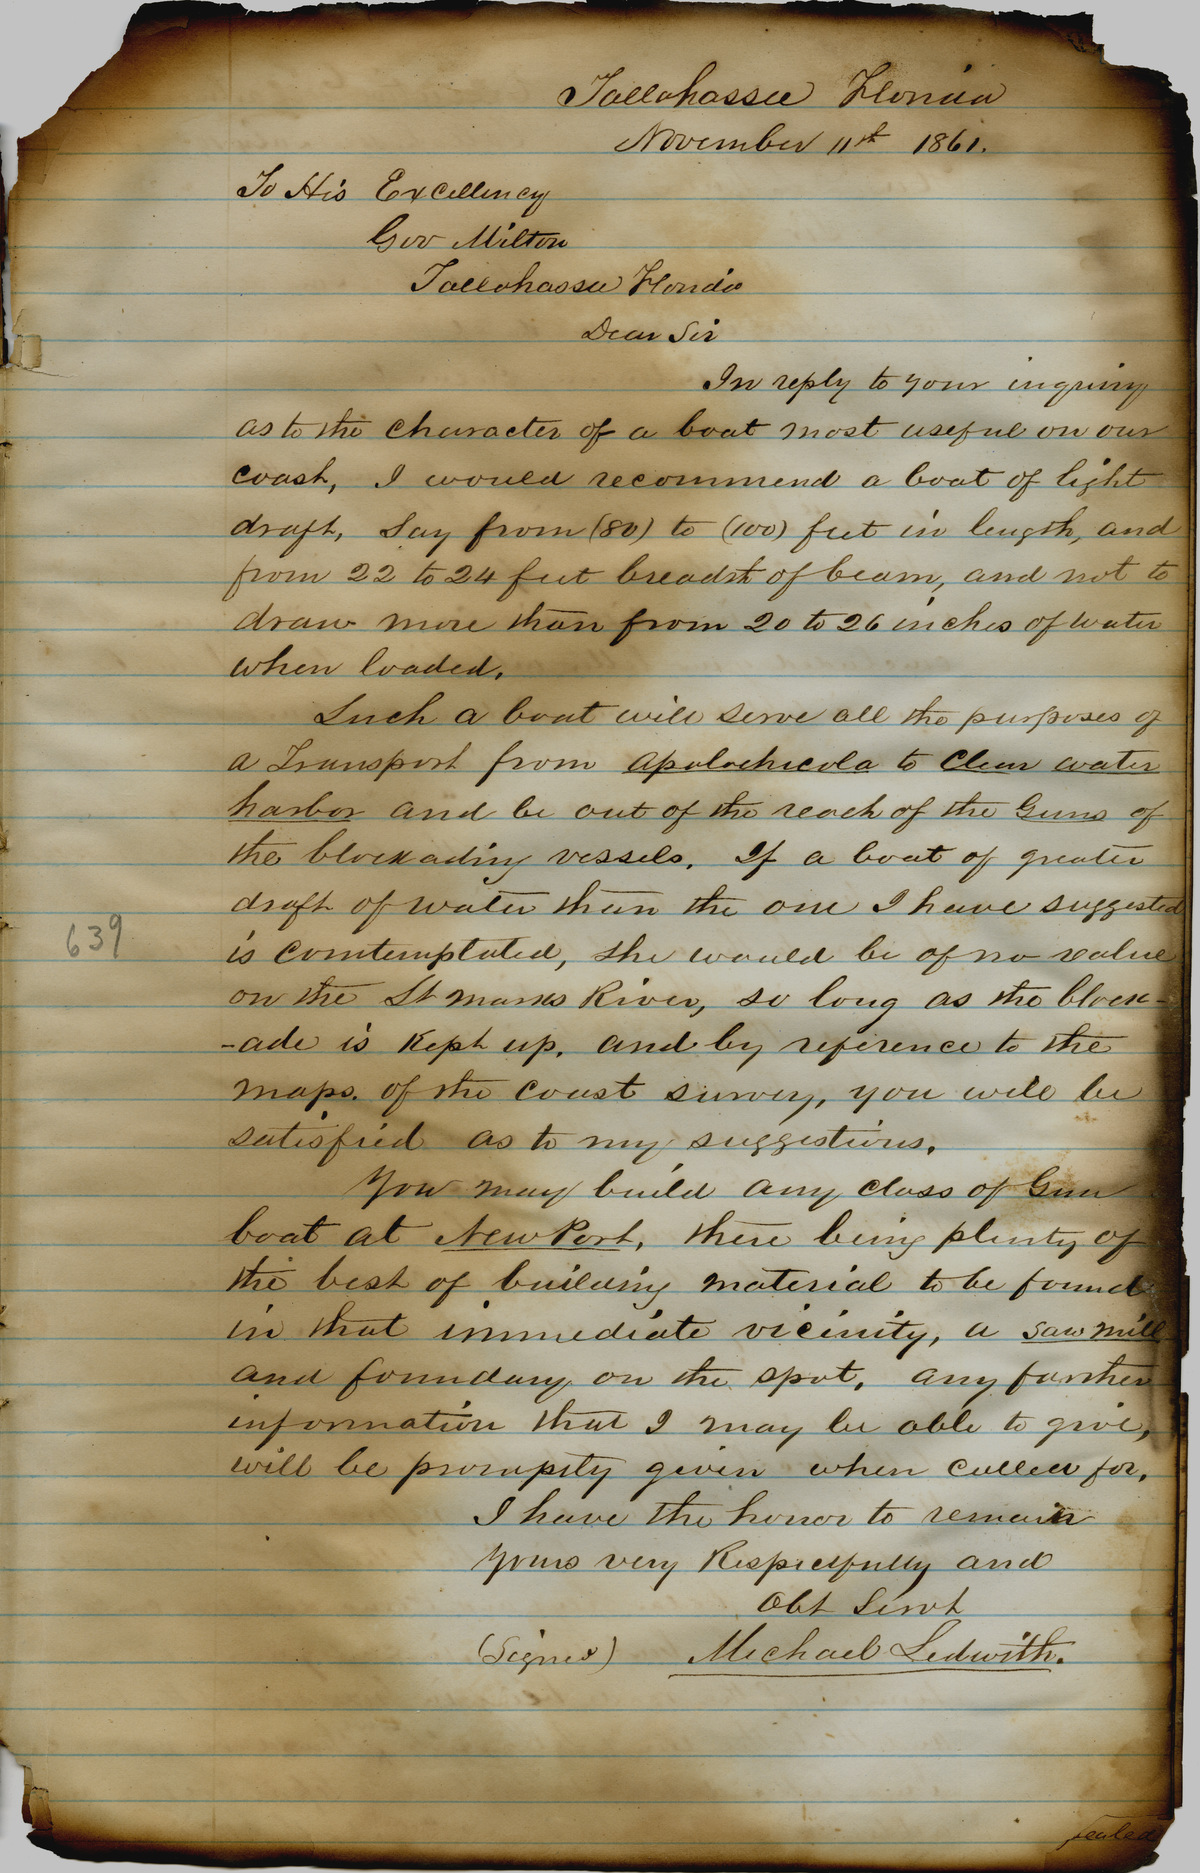 Tallahassee Florida
November 11th 1861.
To His Excellency
Gov Milton
Tallahassee Florida
Dear Sir
In reply to your inquiry
as to the character of a boat most useful on our
coast, I would recommend a boat of light
draft, Say from (80) to (100) feet in length, and
from 22 to 24 feet breadth of beam, and not to
draw more than from 20 to 26 inches of water
when loaded.
Such a boat will serve all the purposes of
a Transport from Apalachicola to Clear water
harbor and be out of the reach of the Guns of
the blockading vessels. If a boat of greater
draft of water than the one I have suggested
is comtemplated, she would be of no value
on the St Marks River, so long as the block-
-ade is Kept up. and by reference to the
maps. of the coast survey, you will be
satisfied as to my suggestions.
You may build any class of Gun
boat at New Port, there being plenty of
the best of building material to be found
in that immediate vicinity, a saw mill
and foundary on the spot. any further
information that I may be able to give,
639
will be promptly given when called for.
I have the honor to remain
Yours very Respectfully and
Obt Servt
(Signed) Michael Ledwith.